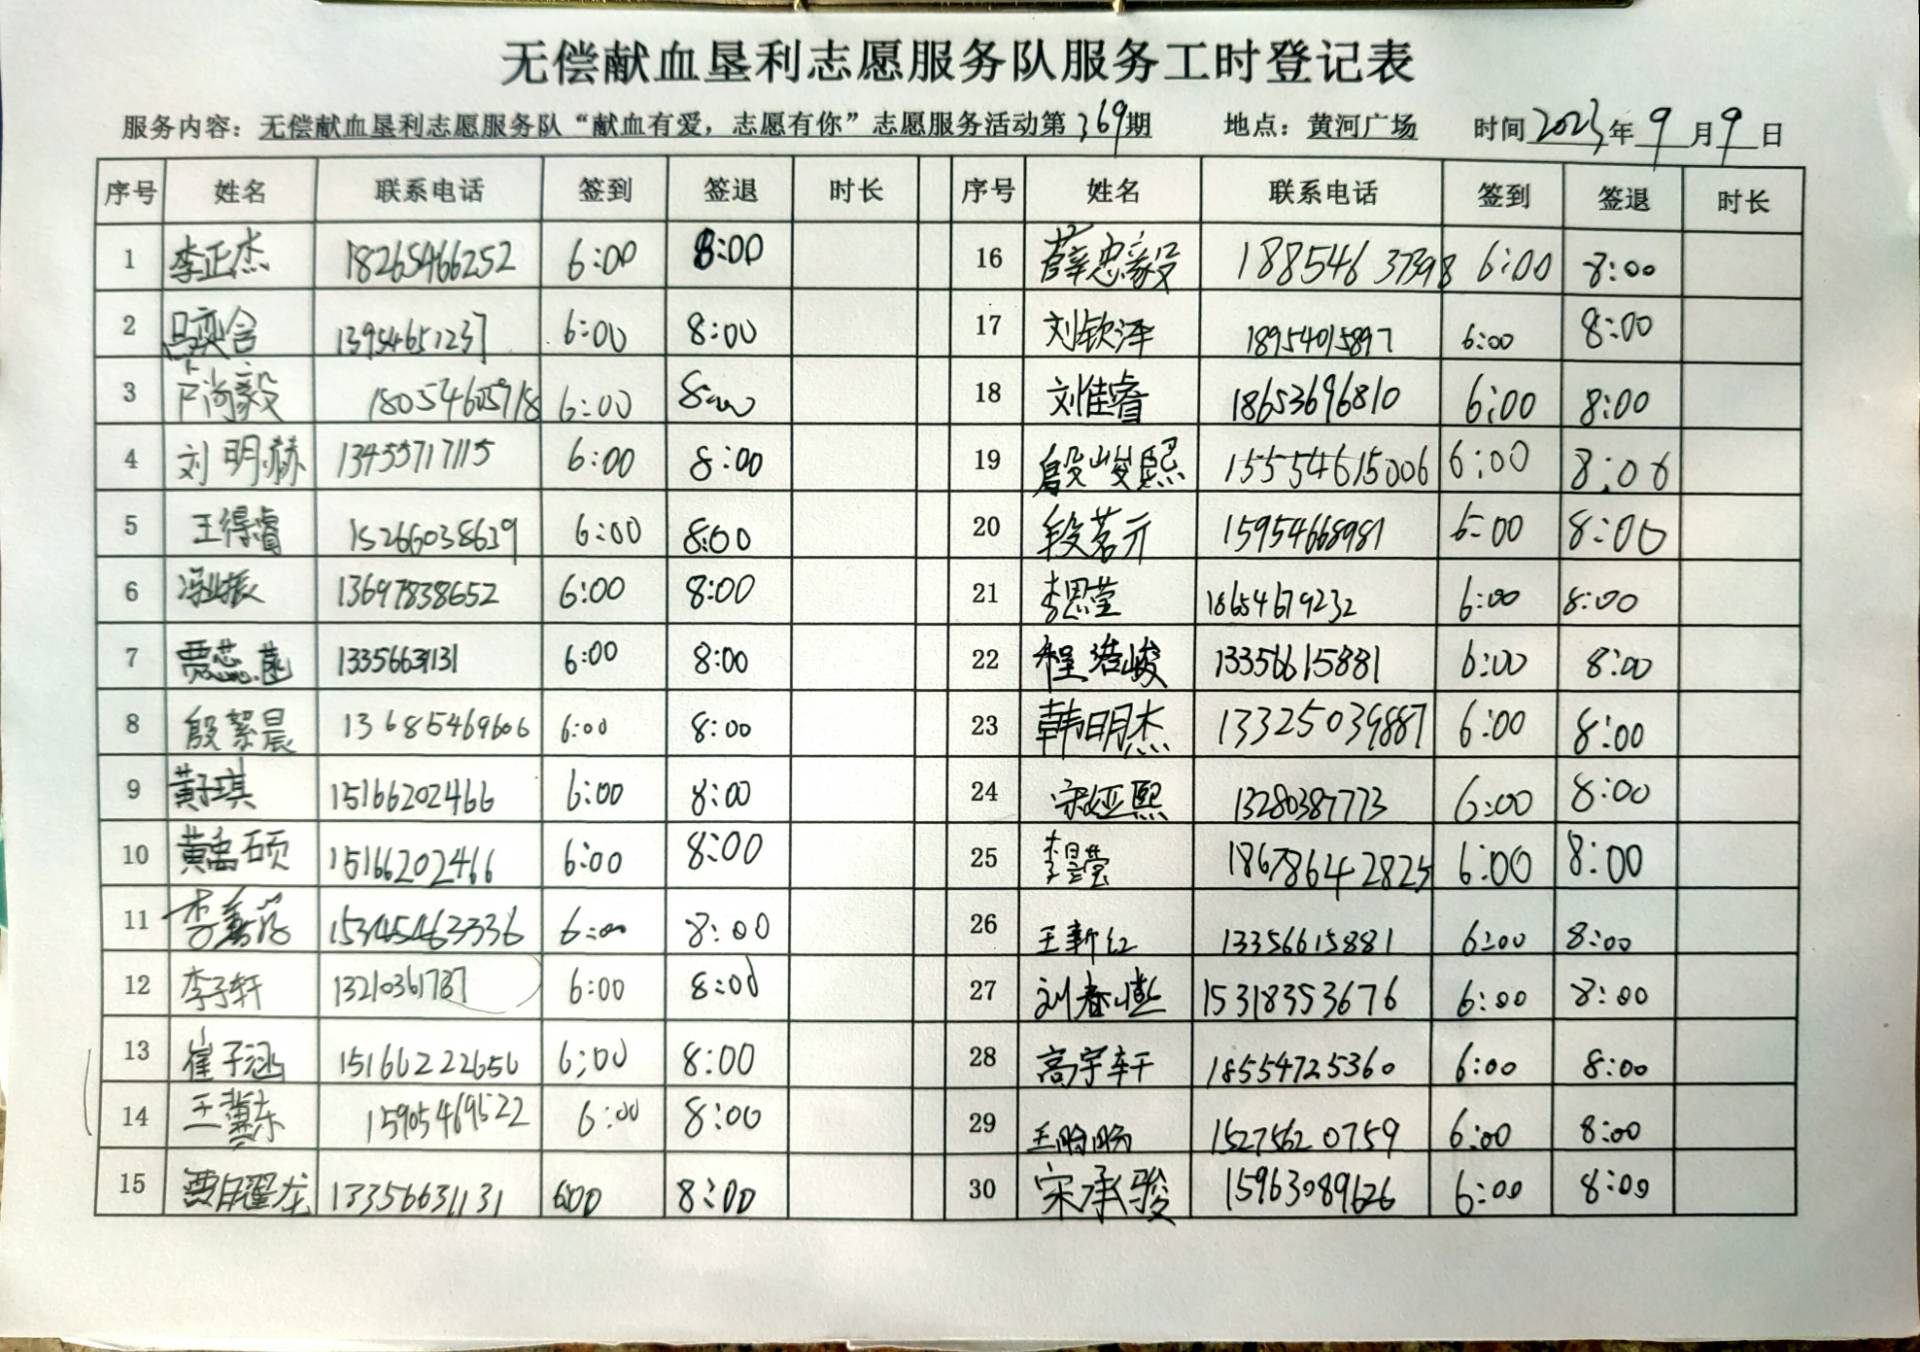 无偿献血垦利志愿服务队服务工时登记表
服务内容：无偿献血垦利志愿服务队“献血有爱，志愿有你”志愿服务活动第369期 地点：黄河广场 时间2023年9月9日
序号 姓名 联系电话 签到 签退 时长 序号 姓名 联系电话 签到 签退 时长
1 李正杰 18265466252 6:00 8:00 16 薛忠毅 18854637398 6:00 8:00
2 吕奕含 13954651237 6:00 8:00 17 刘钦泽 18954015897 6:00 8:00
3 芦尚毅 18054605718 6:00 8:00 18 刘佳睿 18653696810 6:00 8:00
4 刘明赫 13455717115 6:00 8:00 19 殷峻熙 15554615006 6:00 8:00
5 王得睿 15266038639 6:00 8:00 20 段茗亓 15954668981 6:00 8:00
6 13697838652 6:00 8:00 21 李思莹 18654679232 6:00 8:00
7 贾蕊菡 6:00 8:00 22 程浩峻 13356615881 6:00 8:00
8 殷絮晨 13685469606 6:00 8:00 23 韩明杰 13325039887 6:00 8:00
9 黄子琪 15166202466 6:00 8:00 24 宋娅熙 13280387773 6:00 8:00
10 黄禹硕 15166202466 6:00 8:00 25 李昱莹 18678642825 6:00 8:00
11 李 15345463336 6:00 8:00 26 王新红 13356615881 6:00 8:00
12 李子轩 13210361787 6:00 8:00 27 刘春 15318353676 6:00 8:00
13 崔子涵 15166222656 6:00 8:00 28 高宇轩 18554725360 6:00 8:00
14 王冀东 15905469522 6:00 8:00 29 王 15275620759 6:00 8:00
15 13356631131 6:00 8:00 30 宋承骏 15963089626 6:00 8:00